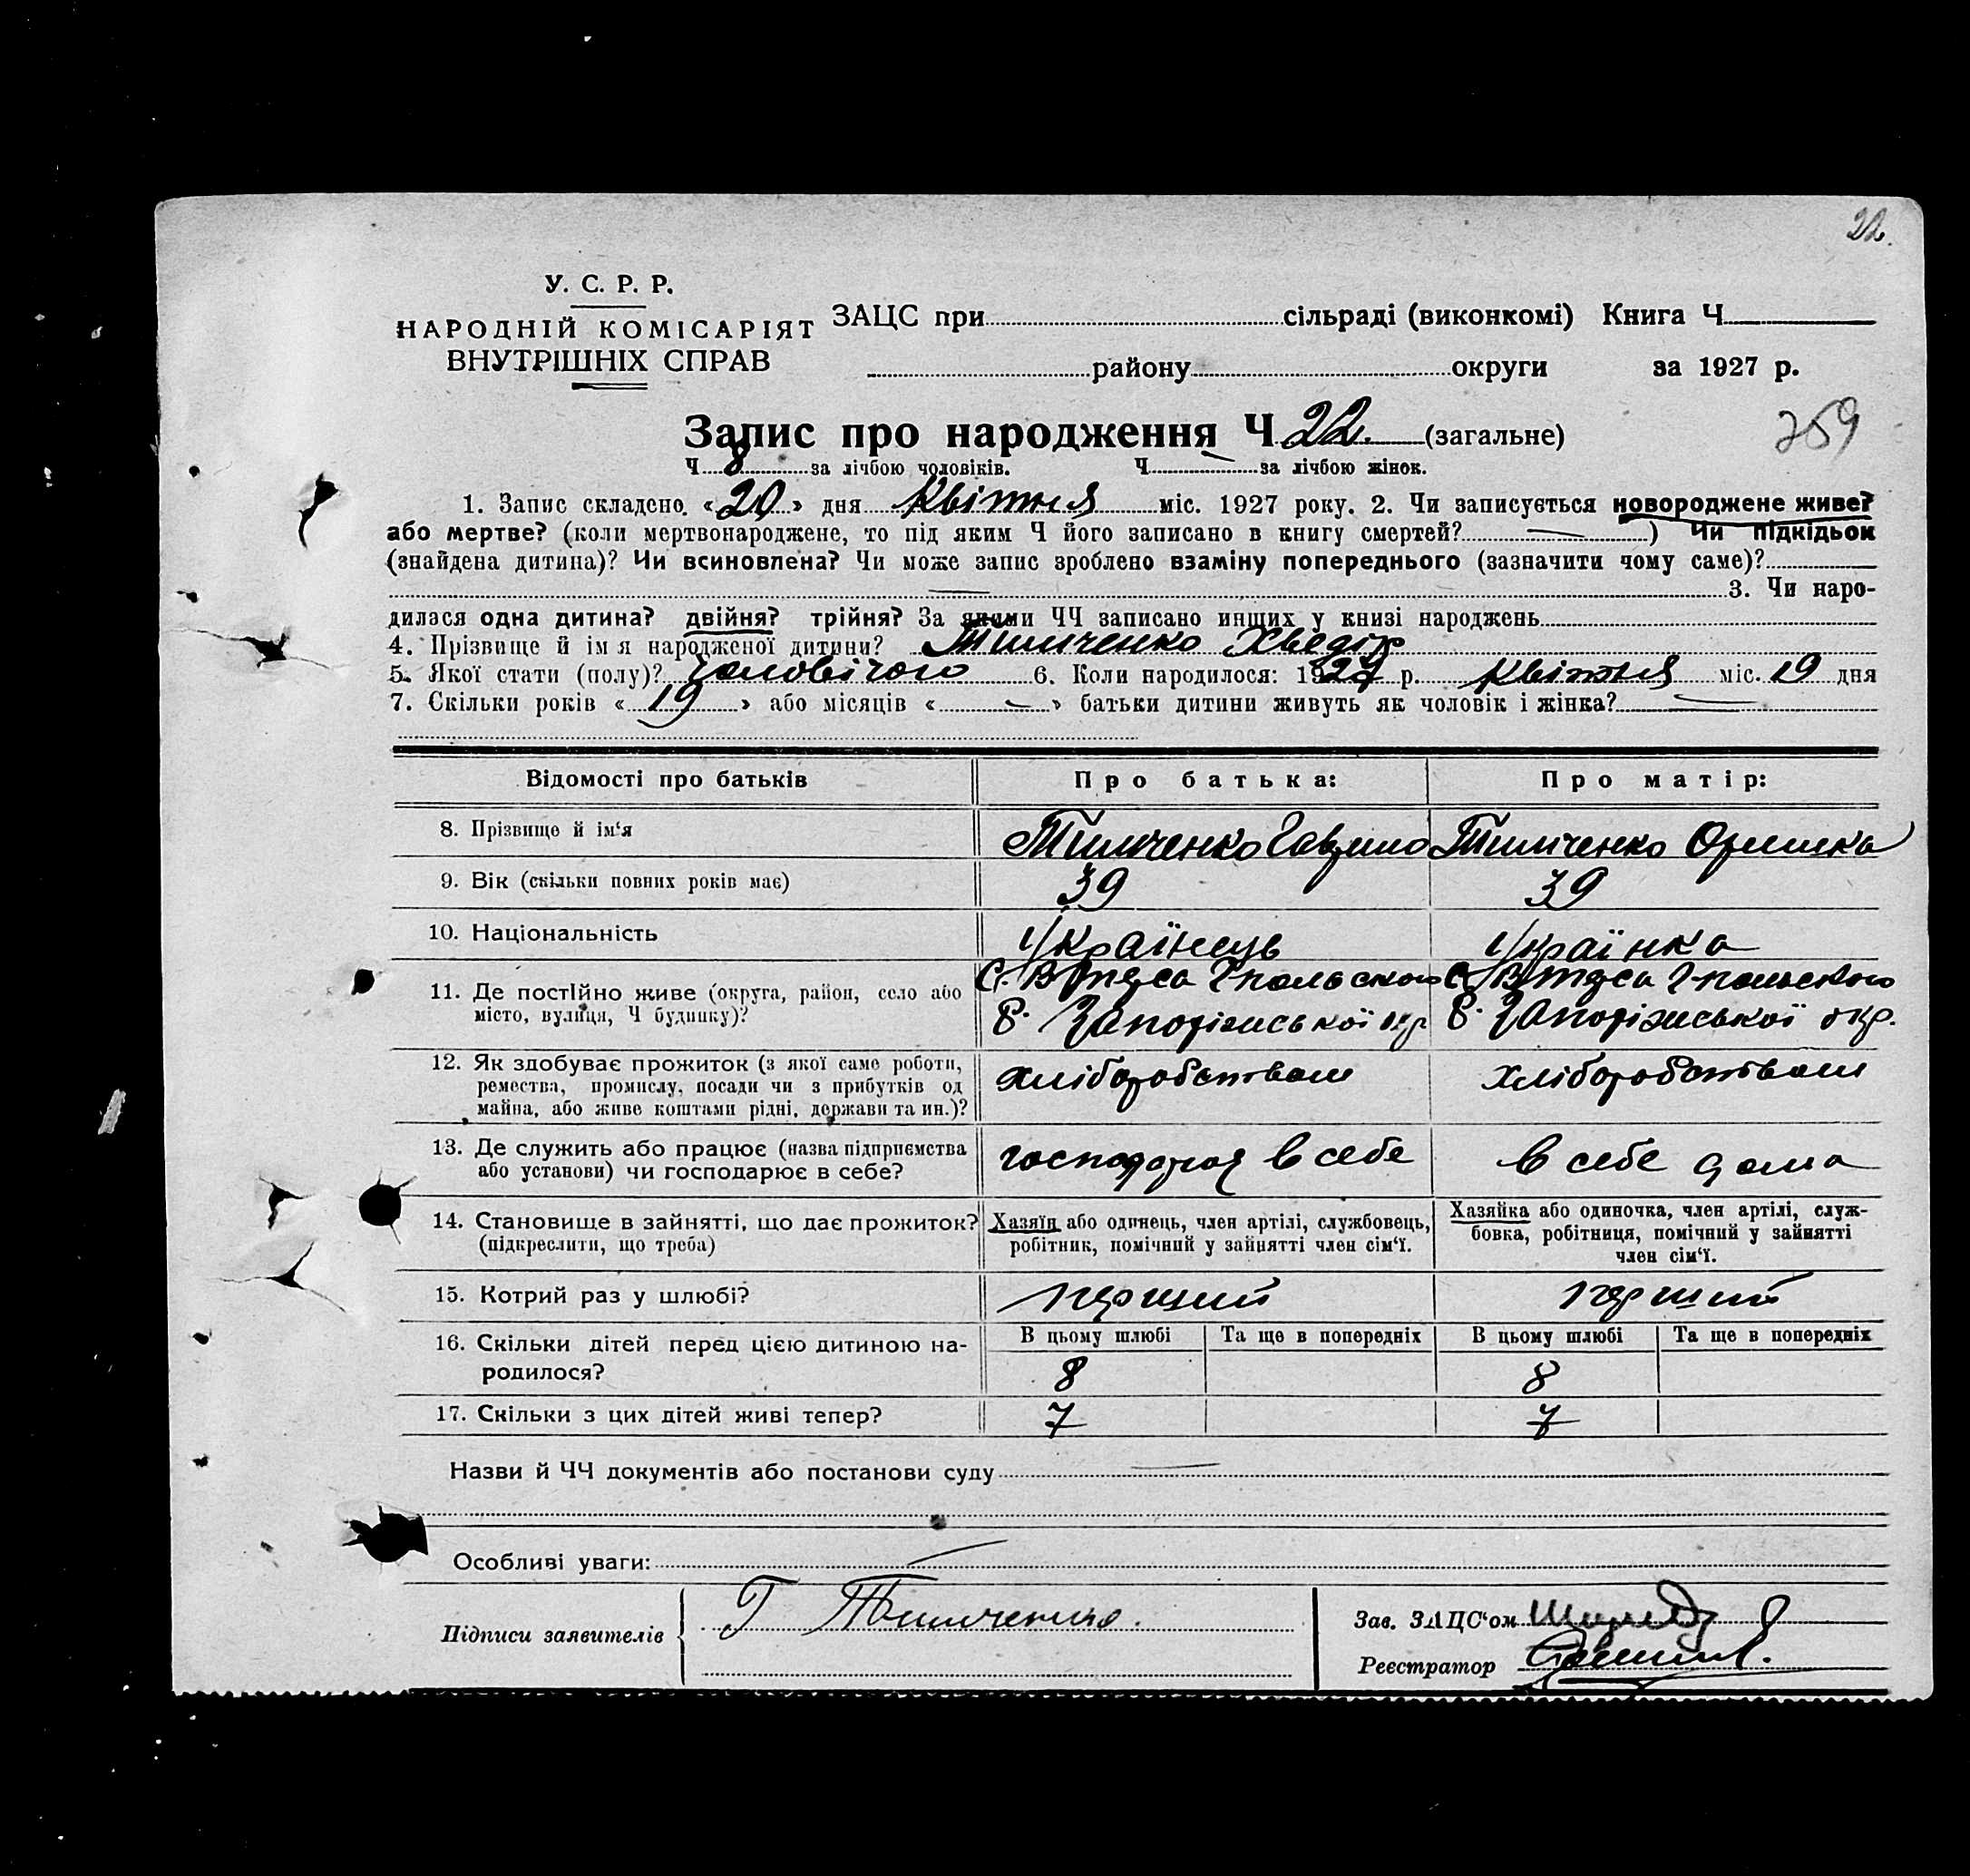 22.
У. С. Р. Р.
НАРОДНІЙ КОМІСАРІЯТ
ВНУТРІШНІХ СПРАВ
ЗАЦС при сільраді (виконкомі) Книга Ч
району округи за 1927 р.
Запис про народження Ч 22. (загальне)
259
Ч 8 за лічбою чоловіків. Ч — за лічбою жінок.
1. Запис складено «20» дня Квітня міс. 1927 року. 2. Чи записується новороджене живе?
або мертве? (коли мертвонароджене, то під яким Ч його записано в книгу смертей? —) Чи підкідьок
(знайдена дитина)? Чи всиновлена? Чи може запис зроблено взаміну попереднього (зазначити чому саме)?
— 3. Чи наро-
дилася одна дитина? двійня? трійня? За якими ЧЧ записано инших у книзі народжень
4. Прізвище й ім я народженої дитини? Тимченко Хведір
5. Якої стати (полу)? чоловічого 6. Коли народилося: 1927 р. Квітня міс. 19 дня
7. Скільки років «19» або місяців «—» батьки дитини живуть як чоловік і жінка? —
Відомості про батьків Про батька: Про матір:
8. Прізвище й ім‘я Тимченко Гаврило Тимченко Оришка
9. Вік (скільки повних років має) 39 39
10. Національність Українець Українка
11. Де постійно живе (округа, район, село або С. С.
місто, вулиця, Ч будинку)? Р. Запоріжської окр Р. Запоріжської окр.
12. Як здобуває прожиток (з якої саме роботи, хліборобством хліборобством
ремества, промислу, посади чи з прибутків од
майна, або живе коштами рідні, держави та ин.)?
13. Де служить або працює (назва підприємства господарює в себе в себе дома
або установи) чи господарює в себе?
14. Становище в зайнятті, що дає прожиток? Хазяїн або одинець, член артілі, службовець, Хазяйка або одиночка, член артілі, служ-
(підкреслити, що треба) робітник, помічний у зайнятті член сім‘ї. бовка, робітниця, помічний у зайнятті
член сім‘ї.
15. Котрий раз у шлюбі? перший перший
16. Скільки дітей перед цією дитиною на- В цьому шлюбі Та ще в попередніх В цьому шлюбі Та ще в попередніх
родилося? 8 8
17. Скільки з цих дітей живі тепер? 7 7
Назви й ЧЧ документів або постанови суду —
Особливі уваги: —
Підписи заявителів Г Тимченко.
Зав. ЗАЦС‘ом
Реєстратор